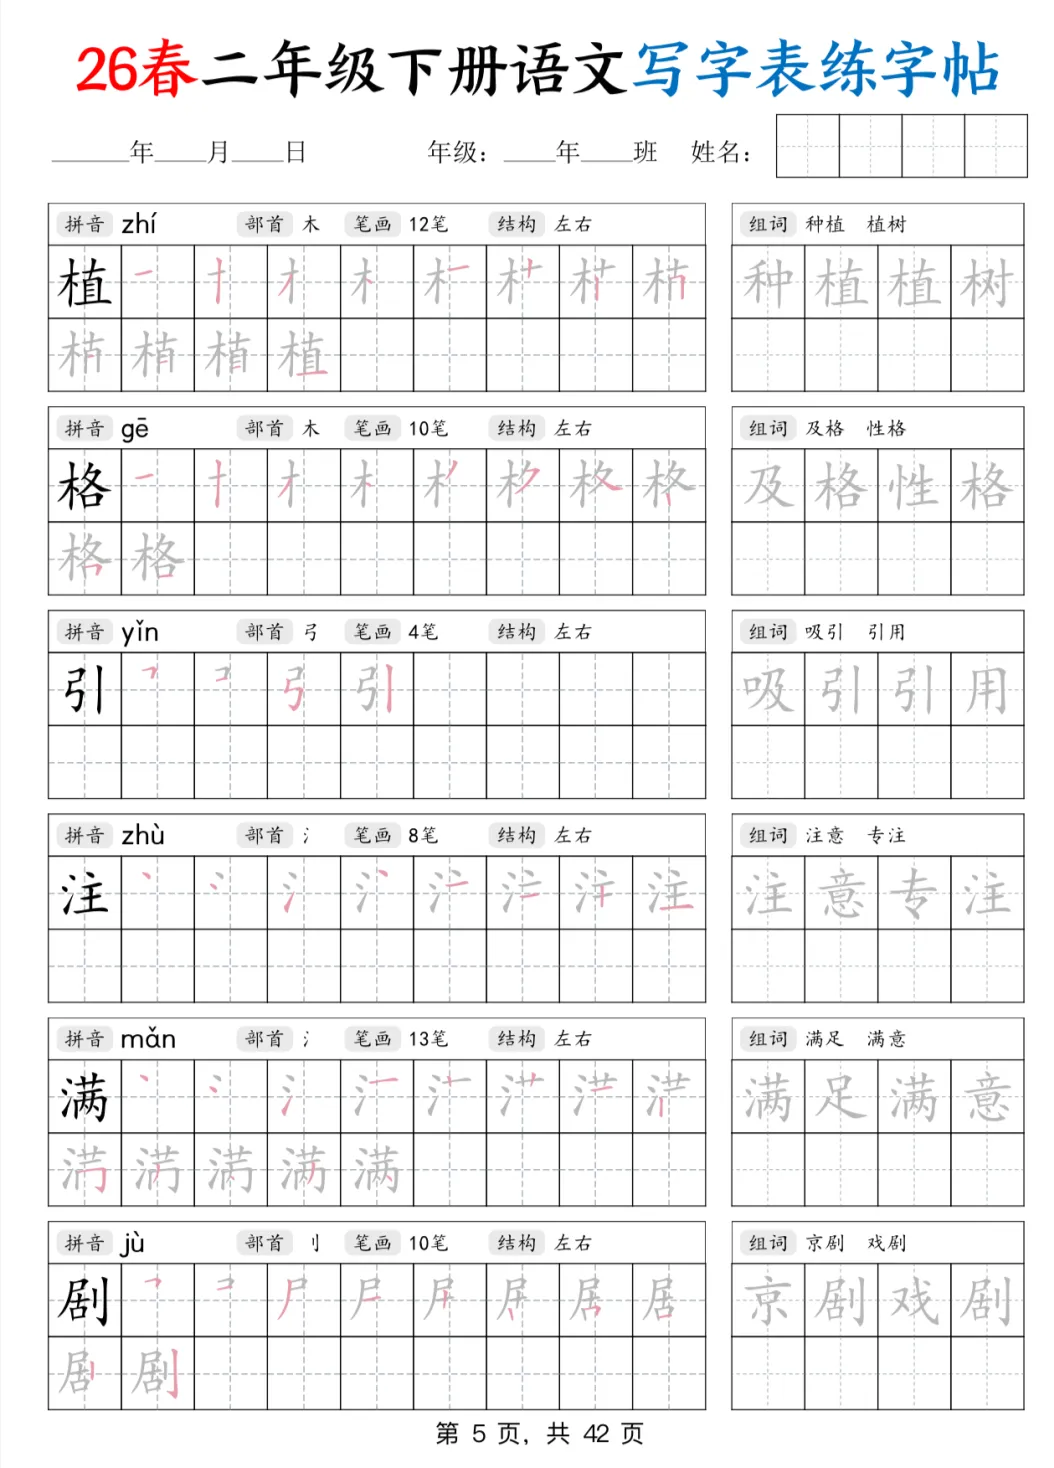 26春二年级下册语文写字表练字帖
年 月 日 年级： 年 班 姓名：
拼音 zhí 部首 木 笔画 12笔 结构 左右 组词 种植 植树
植 一 十 才 木 植 植 植 植 种 植 植 树
植 植 植 植
拼音 gē 部首 木 笔画 10笔 结构 左右 组词 及格 性格
格 一 十 才 木 及 格 性 格
格 格
拼音 yǐn 部首 弓 笔画 4笔 结构 左右 组词 吸引 引用
引 弓 引 吸 引 引 用
拼音 zhù 部首 氵 笔画 8笔 结构 左右 组词 注意 专注
注 丶 冫 氵 注 注 意 专 注
拼音 mǎn 部首 氵 笔画 13笔 结构 左右 组词 满足 满意
满 丶 冫 氵 满 足 满 意
满
拼音 jù 部首 刂 笔画 10笔 结构 左右 组词 京剧 戏剧
剧 尸 居 京 剧 戏 剧
剧
第 5 页，共 42 页